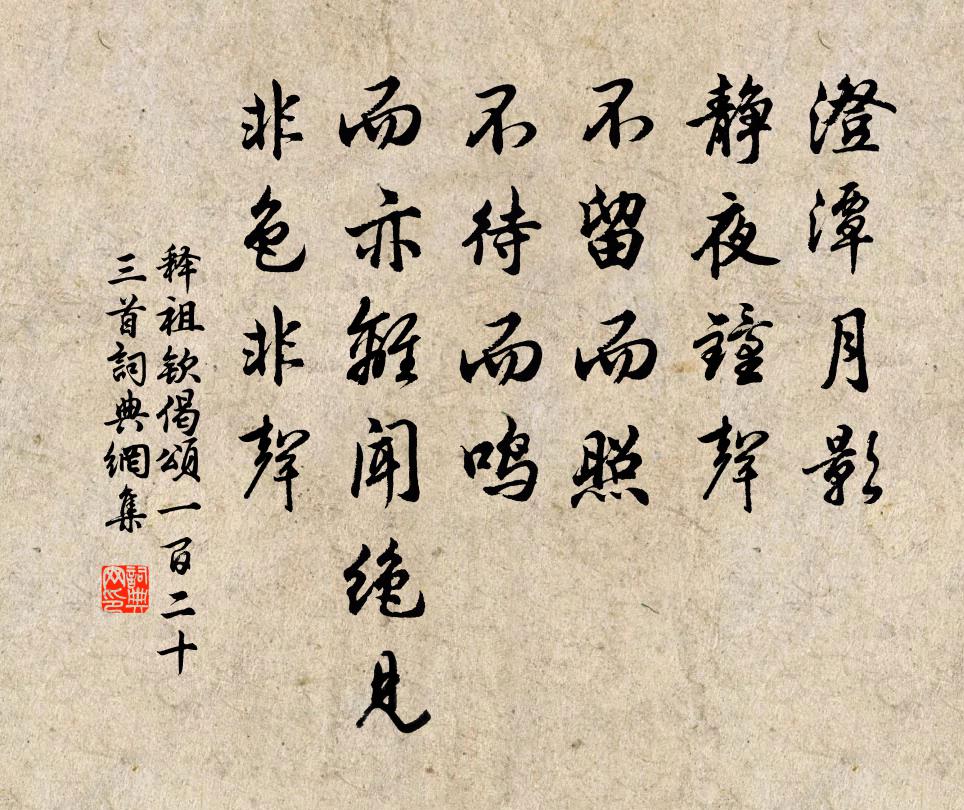 澄潭月影
靜夜鐘聲
不留而照
不待而鳴
而亦離聞絶見
非色非聲
釋祖欽偈頌一百二十
三首詞典網集
詞典網印